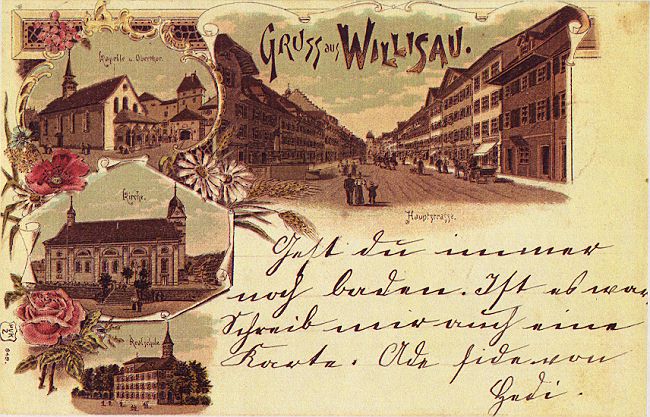 GRUSS aus WILLISAU.
Kapelle u. Oberthor.
Kirche.
Hauptstrasse.
Realschule
Gest du immer
noch baden. Ist es war
Schreib mir auch eine
Karte. Ade von
Hedi.